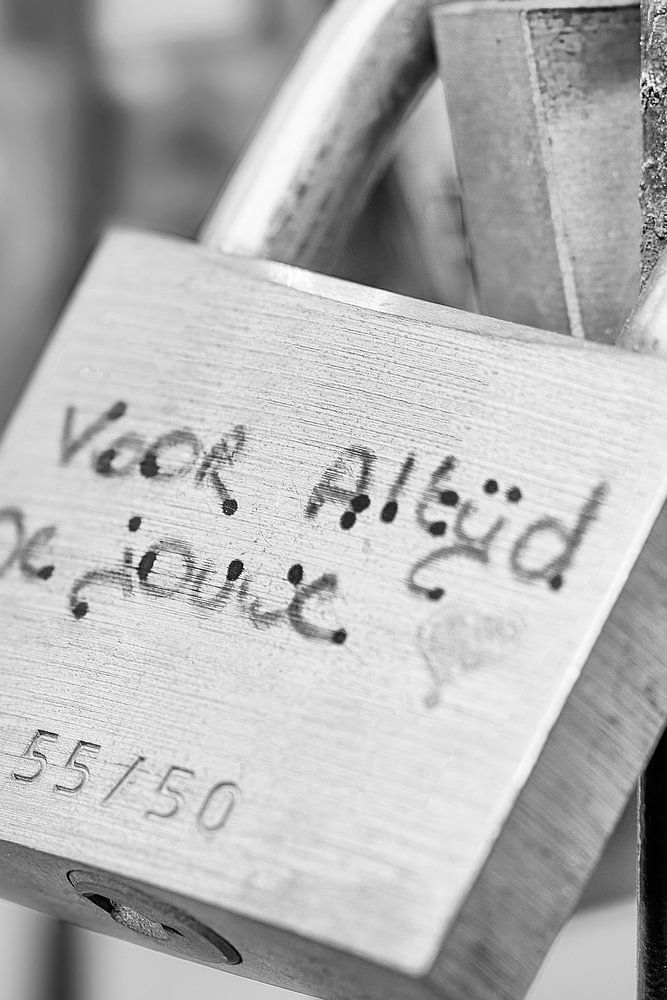 Voor Altijd
De jouwe
55/50